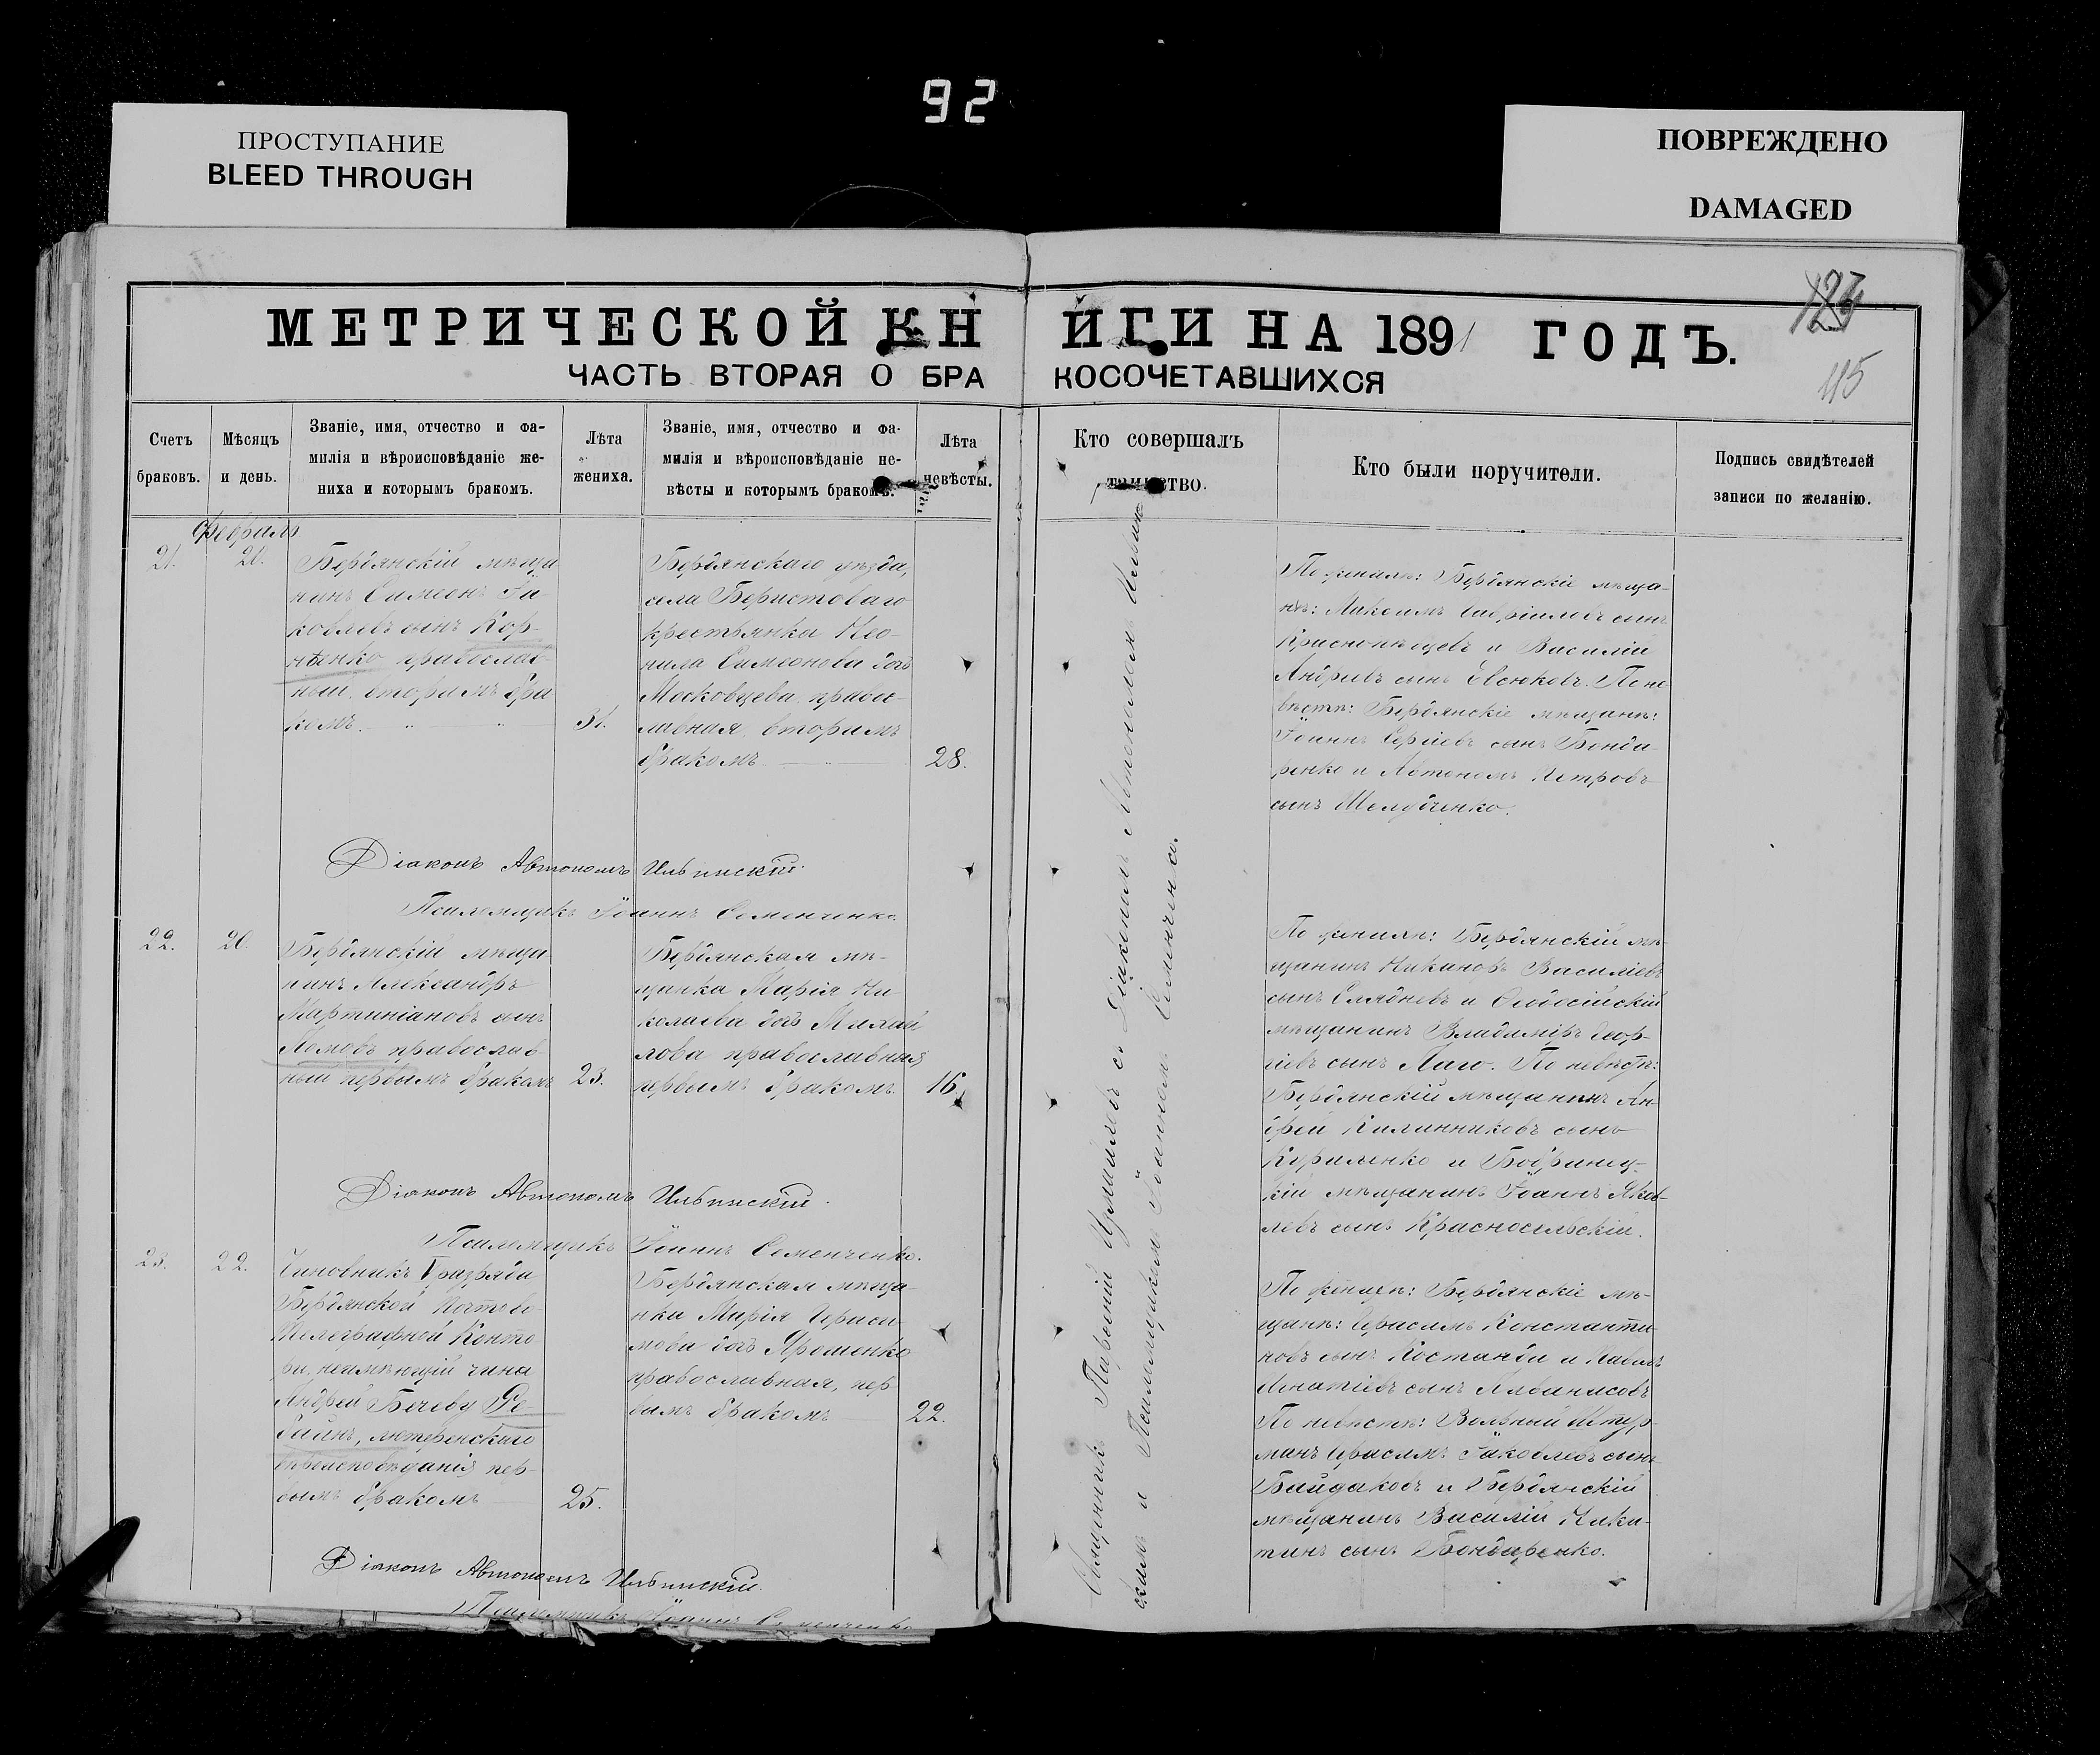 92
ПРОСТУПАНИЕ
BLEED THROUGH
ПОВРЕЖДЕНО
DAMAGED
МЕТРИЧЕСКОЙ КН ИГИ НА 1891 ГОДЪ.
115
ЧАСТЬ ВТОРАЯ О БРА КОСОЧЕТАВШИХСЯ
Счетъ браковъ.
Мѣсяцъ и день.
Званіе, имя, отчество и фа-
милія и вѣроисповѣданіе же-
ниха и которымъ бракомъ.
Лѣта жениха.
Званіе, имя, отчество и фа-
милія и вѣроисповѣданіе не-
вѣсты и которымъ бракомъ.
Лѣта невѣсты.
Кто совершалъ
таинство.
Кто были поручители.
Подпись свидѣтелей
записи по желанію.
Февраль
21.
20.
Бердянскій мѣща
нинъ Симеонъ Іа-
ковлевъ сынъ Кор-
нѣенко православ-
ный, вторымъ бра
комъ.
31.
Бердянскаго уѣзда,
села Берестоваго
крестьянка Нео-
нила Симеонова дочь
Московцева, право-
славная, вторымъ
бракомъ
28.
По женихѣ: Бердянскіе мѣща-
не: Максимъ Гавріиловъ сынъ
и Василій
Андреевъ сынъ Евсюковъ. По не
вѣстѣ: Бердянскіе мѣщане:
Іоаннъ Сергіевъ сынъ Бонда-
ренко и Автономъ Петровъ
сынъ Шелудченко.
Діаконъ Автономъ Ильинскій.
Псаломщикъ Іоаннъ Семенченко.
22.
20.
Бердянскій мѣща
нинъ Александръ
Мартиніановъ сынъ
Ломовъ православ-
ный первымъ бракомъ
23.
Бердянская мѣ-
щанка Марія Ни
колаева дочь Михай
лова православная,
первымъ бракомъ.
16.
По женихѣ: Бердянскій мѣ-
щанинъ Никаноръ Василіевъ
сынъ Слядневъ и Ѳеодосійскій
мѣщанинъ Владиміръ Геор-
гіевъ сынъ По невѣстѣ:
Бердянскій мѣщанинъ Ан-
дрей Калинниковъ сынъ
Куриленко и Бобринец-
кій мѣщанинъ Іоаннъ Яков-
левъ сынъ Красносельскій.
Діаконъ Автономъ Ильинскій.
Псаломщикъ Іоаннъ Семенченко.
23.
22.
Чиновникъ V разряда
Бердянской Почтово-
Телеграфной Конто
ры, неимѣющій чина
Андрей
лютеранскаго
вѣроисповѣданія пер-
вымъ бракомъ
25.
Бердянская мѣща-
нка Марія Гераси-
мова дочь Яроменко
православная, пер
вымъ бракомъ
22.
По женихѣ: Бердянскіе мѣ-
щане: Герасимъ Константи-
новъ сынъ Костанди и Павелъ
Игнатіевъ сынъ
По невѣстѣ: Вольный Штур-
манъ Герасимъ Іаковлевъ сынъ
Байдаковъ и Бердянскій
мѣщанинъ Василій Ники-
тинъ сынъ Бондаренко.
Діаконъ Автономъ Ильинскій.
Псаломщикъ Іоаннъ Семенченко
Священникъ съ Діакономъ Автономомъ Ильин
скимъ и Псаломщикомъ Іоанномъ Семенченко.